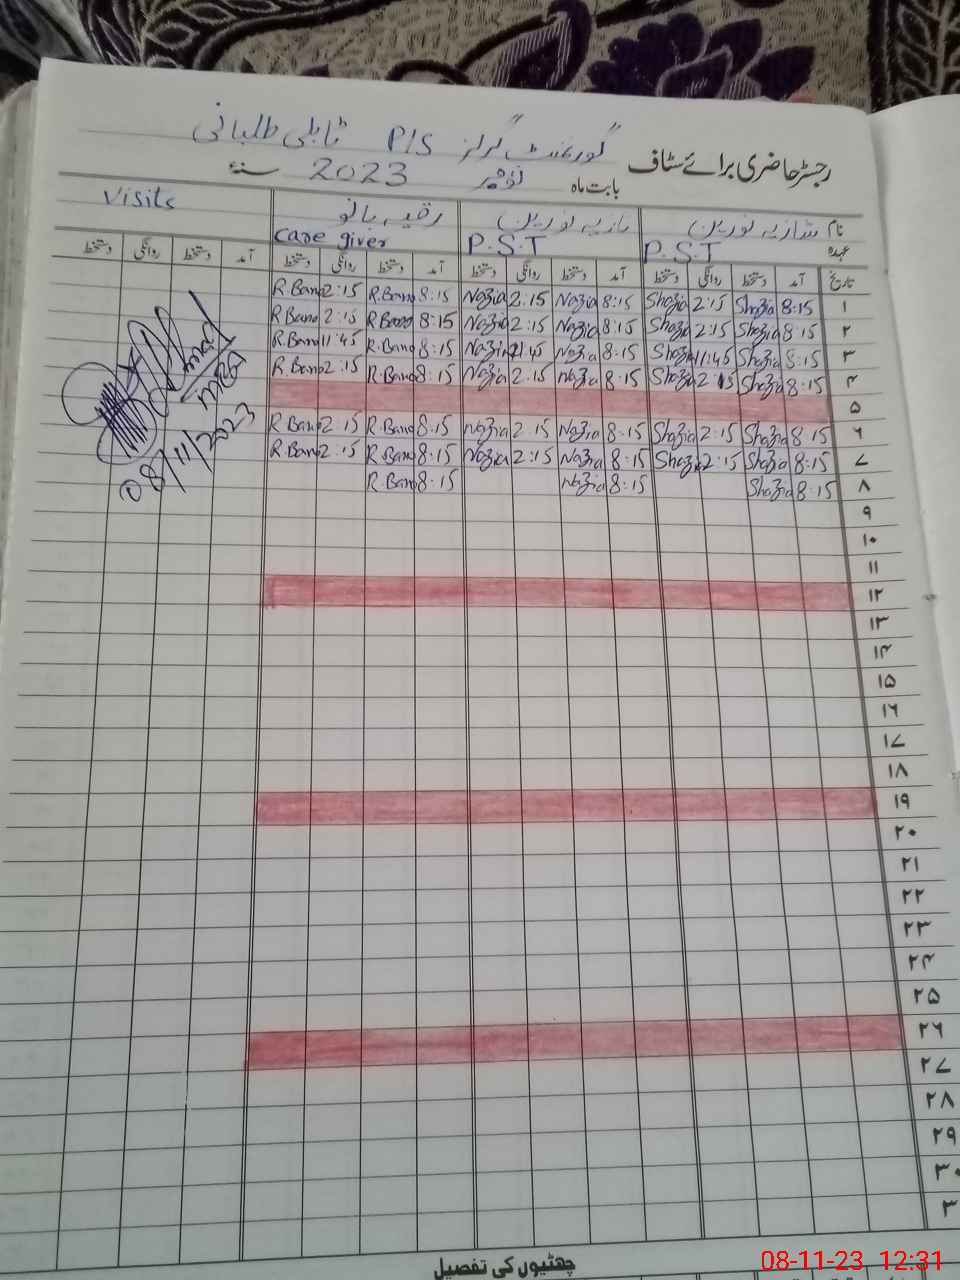 گورنمنٹ گرلز P/S ٹاہلی طلبانی
رجسٹر حاضری برائے سٹاف
بابت ماہ نومبر 2023 سنہء
نام شازیہ نورین نازیہ نورین رقیہ بانو Visits
عہدہ P.S.T P.S.T Care giver
تاریخ آمد دستخط روانگی دستخط آمد دستخط روانگی دستخط آمد دستخط روانگی دستخط آمد دستخط روانگی دستخط
۱ 8:15 Shazia 2:15 Shazia 8:15 Nazia 2:15 Nazia 8:15 R.Bano 2:15 R.Bano
۲ 8:15 Shazia 2:15 Shazia 8:15 Nazia 2:15 Nazia 8:15 R.Bano 2:15 R.Bano
۳ 8:15 Shazia 11:45 Shazia 8:15 Nazia 11:45 Nazia 8:15 R.Bano 11:45 R.Bano
۴ 8:15 Shazia 2:15 Shazia 8:15 Nazia 2:15 Nazia 8:15 R.Bano 2:15 R.Bano
۵
۶ 8:15 Shazia 2:15 Shazia 8:15 Nazia 2:15 Nazia 8:15 R.Bano 2:15 R.Bano
۷ 8:15 Shazia 2:15 Shazia 8:15 Nazia 2:15 Nazia 8:15 R.Bano 2:15 R.Bano
۸ 8:15 Shazia 8:15 Nazia 8:15 R.Bano
MEA
08/11/2023
۹
۱۰
۱۱
۱۲
۱۳
۱۴
۱۵
۱۶
۱۷
۱۸
۱۹
۲۰
۲۱
۲۲
۲۳
۲۴
۲۵
۲۶
۲۷
۲۸
۲۹
۳۰
۳
چھٹیوں کی تفصیل
08-11-23 12:31